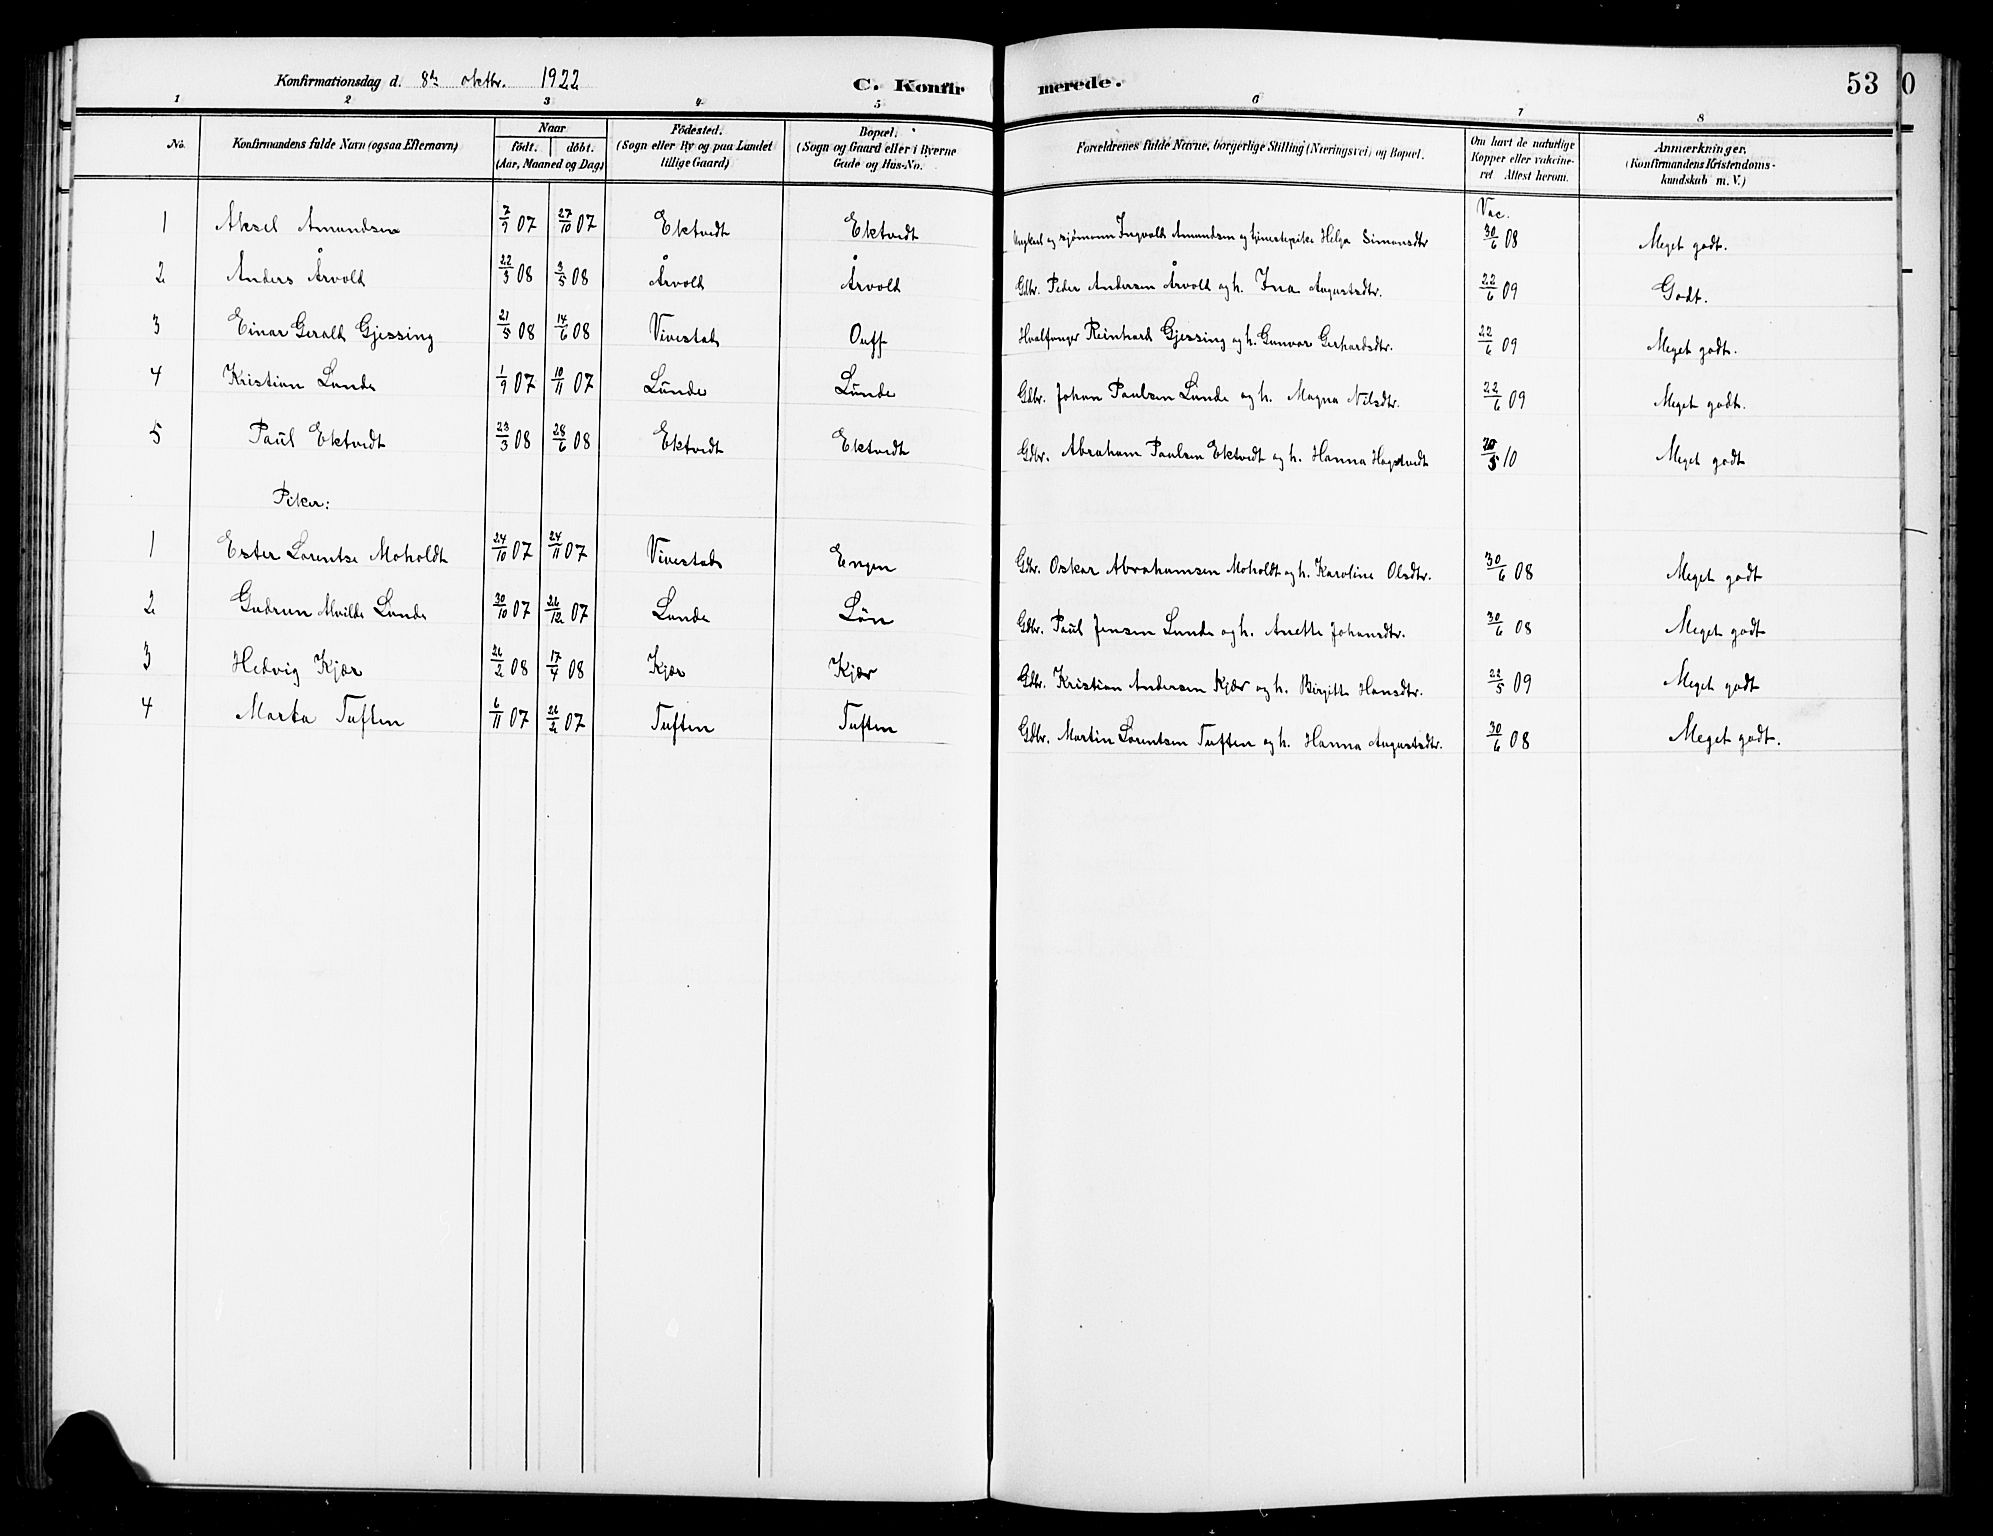 Konfirmationsdag d. 8de oktbr. 1922 C. Konfirmerede. 53 0
1 2 3 4 5 6 7 8
No. Konfirmandens fulde Navn (ogsaa Efternavn) Naar födt. döbt. (Aar, Maaned og Dag) Födested. (Sogn eller By og paa Landet tillige Gaard) Bopæl. (Sogn og Gaard eller i Byerne Gade og Hus-No. Forældrenes fulde Navne, borgerlige Stilling (Næringsvei) og Bopæl. Om havt de naturlige Kopper eller vakcineret Attest herom. Anmærkninger. (Konfirmandens Kristendomskundskab m. V.)
Vac.
1 Aksel Amundsen 7/9 07 27/10 07 Ektvedt Ektvedt Ungkarl og sjømann Ingvald Amundsen og tjenestepike Helga Simonsdtr 30/6 08 Meget godt.
2 Anders Årvold 22/3 08 3/5 08 Årvold Årvold Gdbr. Peder Andersen Årvold og h. Ina Augustsdtr. 22/6 09 Godt.
3 Einar Gerald Gjessing 21/5 08 14/6 08 Vivestad Ouff Hvalfanger Reinhard Gjessing og h. Gunvor Gerhardsdtr. 22/6 09 Meget godt.
4 Kristian Lunde 1/9 07 10/11 07 Lunde Lunde Gdbr. Johan Paulsen Lunde og h. Magna Nilsdtr. 22/6 09 Meget godt.
5 Paul Ektvedt 23/3 08 28/6 08 Ektvedt Ektvedt Gdbr. Abraham Paulsen Ektvedt og h. Hanna Hagtvedt 20/5 10 Meget godt
Piker:
1 Ester Lorentse Moholdt 24/10 07 24/11 07 Vivestad Engen Gdbr. Oskar Abrahamsen Moholdt og h. Karoline Olsdtr. 30/6 08 Meget godt
2 Gudrun Alvilde Lunde 30/10 07 26/12 07 Lunde Løn Gdbr. Paul Jensen Lunde og h. Anette Johansdtr. 30/6 08 Meget godt
3 Hedvig Kjær 26/2 08 17/4 08 Kjær Kjær Gdbr. Kristian Andersen Kjær og h. Birgitte Hansdtr. 22/5 09 Meget godt
4 Marta Tuften 6/11 07 26/2 07 Tuften Tuften Gdbr. Martin Lorentsen Tuften og h. Hanna Augustsdtr. 30/6 08 Meget godt.